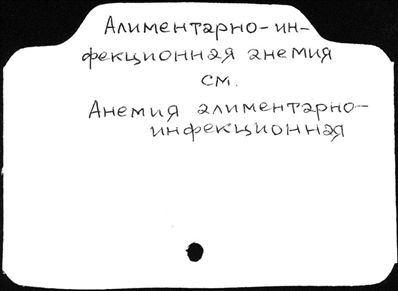 Алиментарно-ин-
фекционная анемия
см.
Анемия алиментарно-
инфекционная